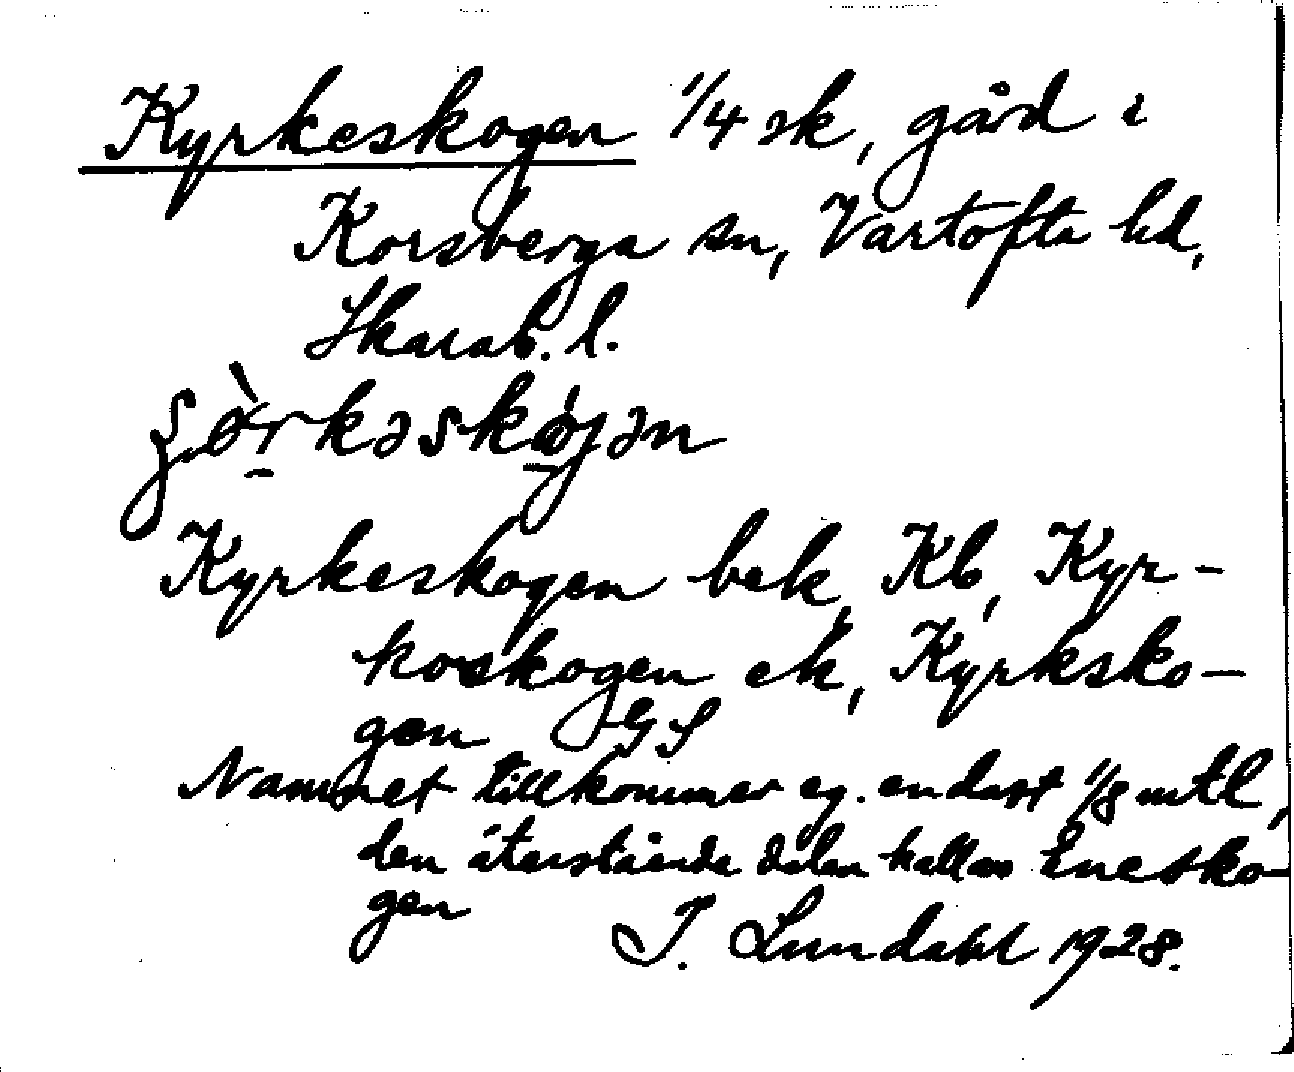 Kyrkeskogen 1/4 sk, gård i
Korsberga sn, Vartofta hd,
Skarab. l.
Kyrkeskogen bek, Kb, Kyr-
koskogen ek, Kyrksko-
gen GS
Namnet tillkommer eg. endast 1/8 mtl,
den återstående delen kallas Eneskogen
gen
I. Lundahl 1928.